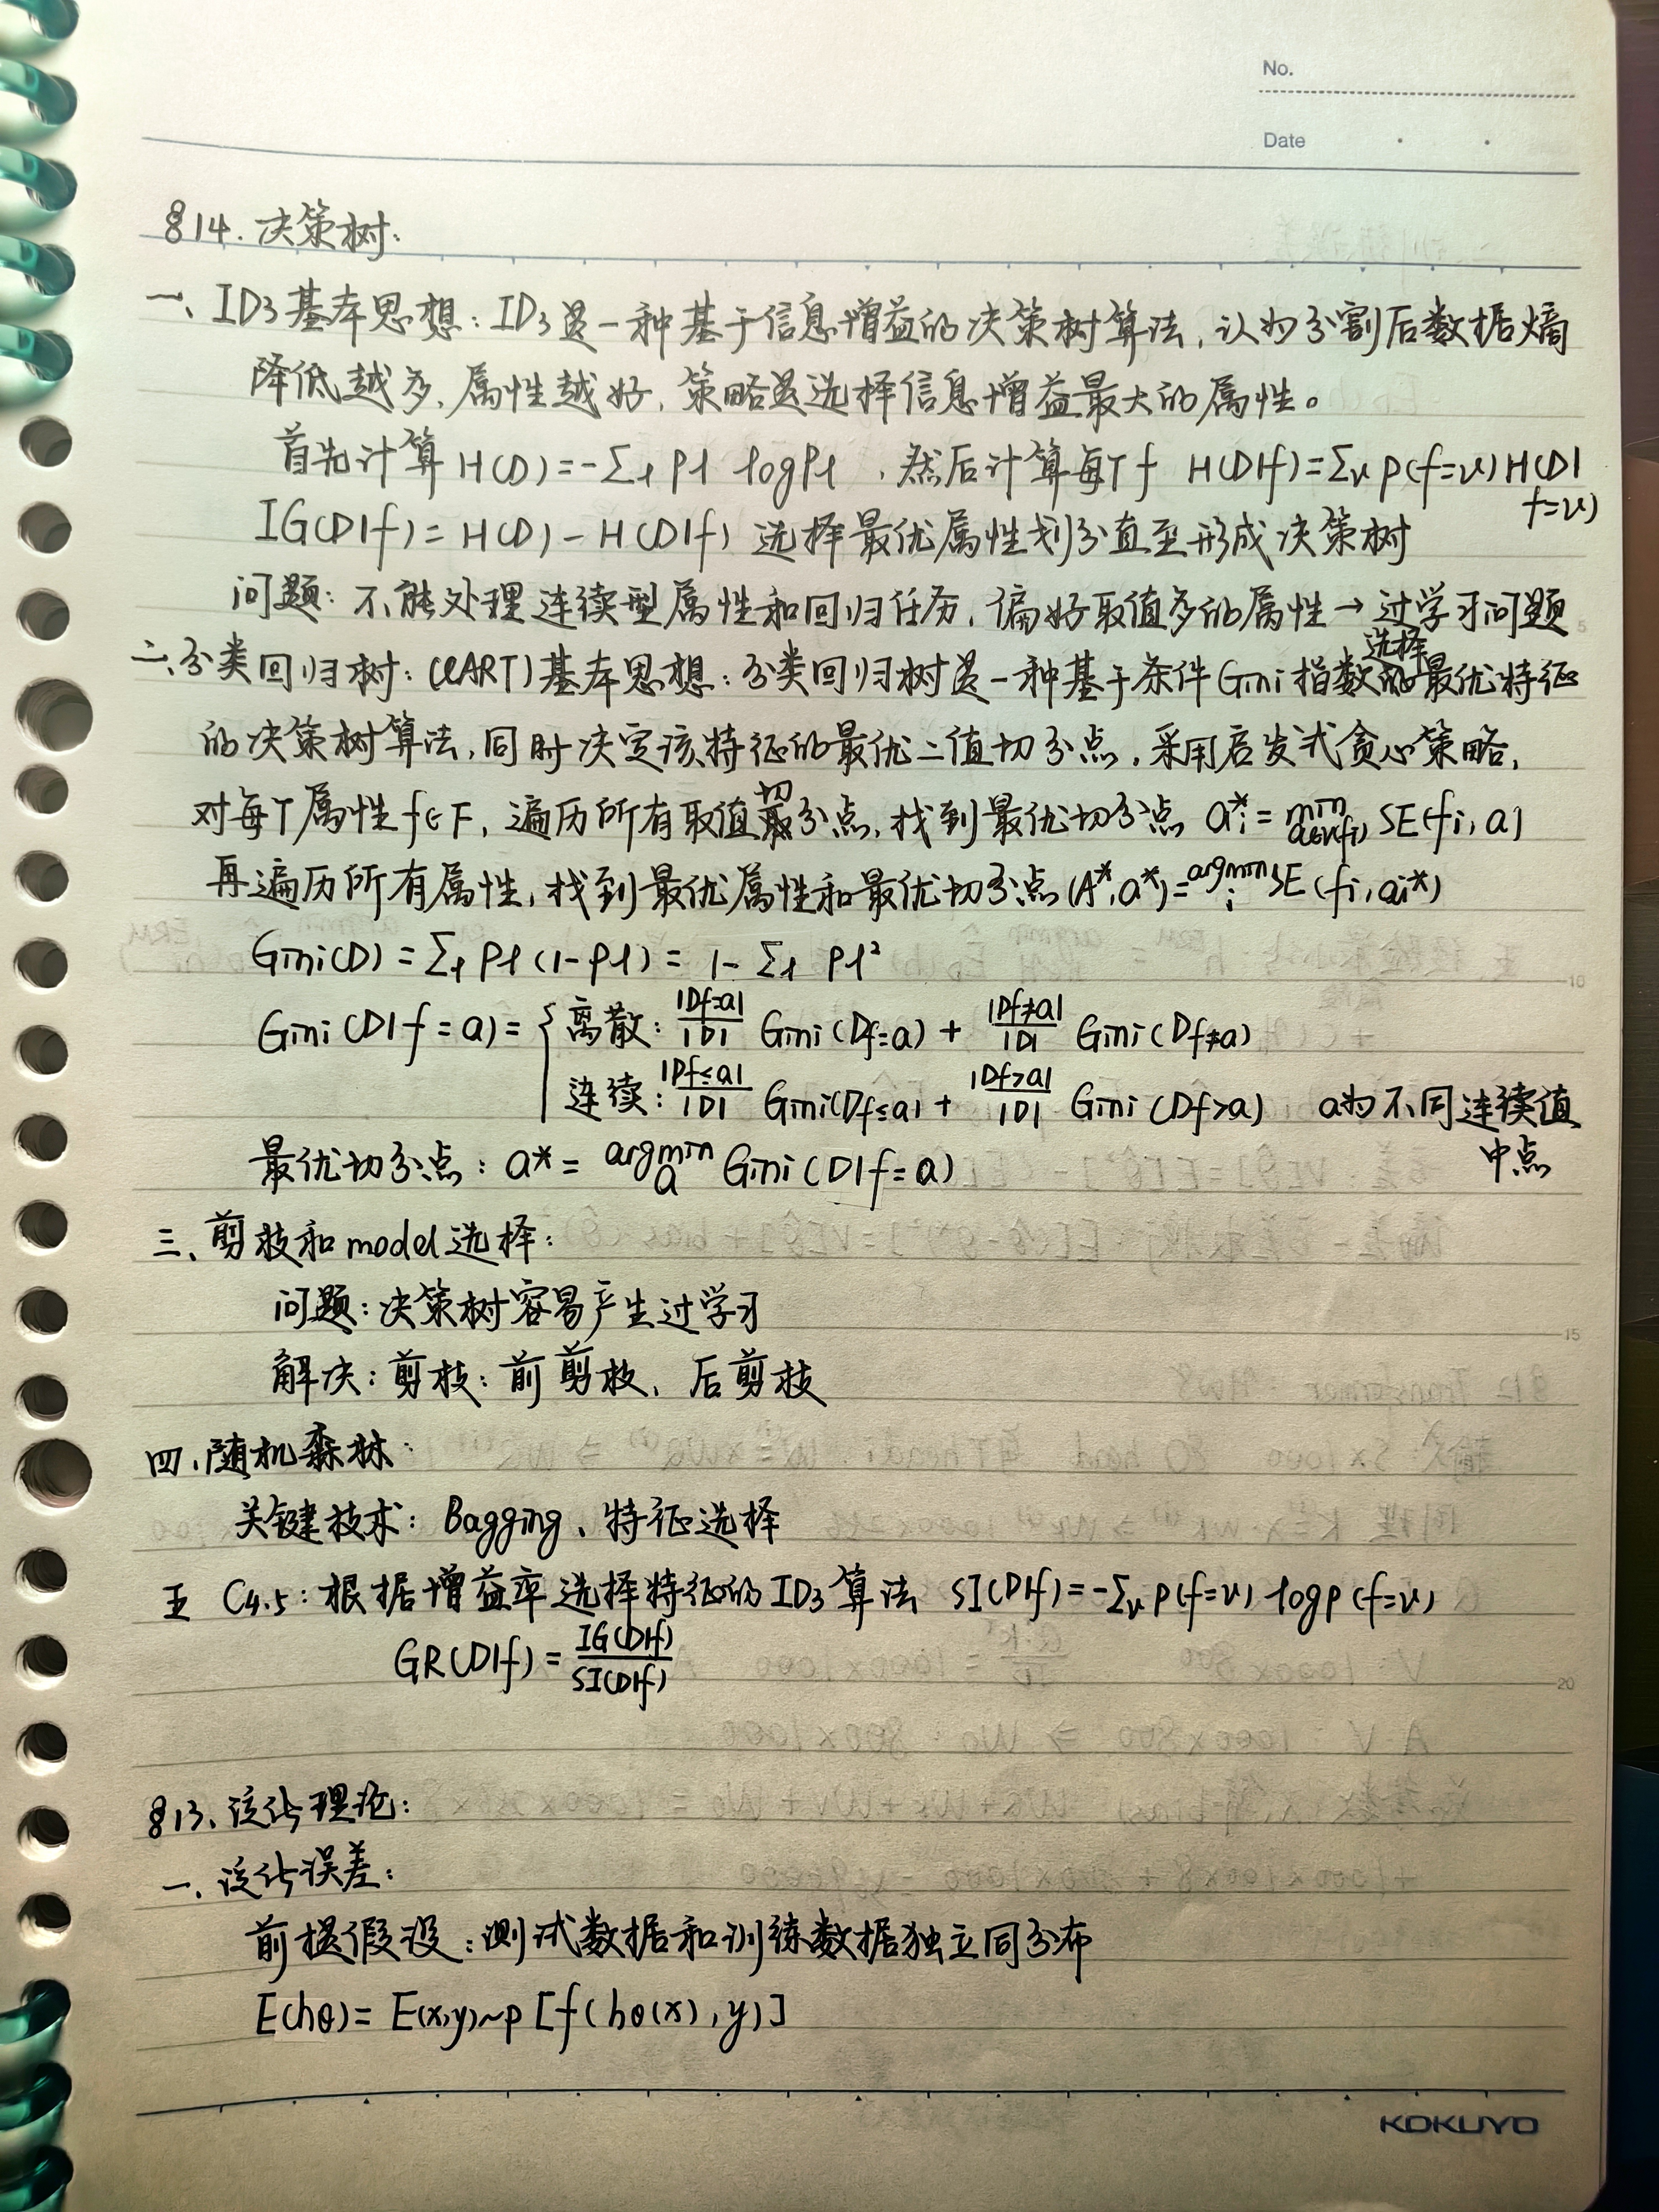 No.
Date
§14. 决策树:
一、ID3基本思想: ID3是一种基于信息增益的决策树算法, 认为分割后数据熵
降低越多, 属性越好, 策略是选择信息增益最大的属性。
首先计算 H(D)=-Σl Pl logPl , 然后计算每个f H(D|f)=Σv P(f=v)H(D|
f=v)
IG(D|f)= H(D)-H(D|f) 选择最优属性划分直至形成决策树
问题: 不能处理连续型属性和回归任务, 偏好取值多的属性→过学习问题
选择
二、分类回归树: (CART)基本思想: 分类回归树是一种基于条件Gini指数的最优特征
的决策树算法, 同时决定该特征的最优二值切分点, 采用启发式贪心策略,
对每个属性f∈F, 遍历所有取值切分点, 找到最优切分点 ai*= min a∈v(fi) SE(fi, a)
再遍历所有属性, 找到最优属性和最优切分点(A*, a*)=argmin i SE(fi, ai*)
Gini(D) = Σl Pl (1-Pl) = 1- Σl Pl²
Gini(D|f=a)= { 离散: |Df=a|/|D| Gini(Df=a) + |Df≠a|/|D| Gini(Df≠a)
连续: |Df≤a|/|D| Gini(Df≤a) + |Df>a|/|D| Gini(Df>a) a为不同连续值
中点
最优切分点: a* = argmin a Gini(D|f=a)
三、剪枝和model选择:
问题: 决策树容易产生过学习
解决: 剪枝: 前剪枝、后剪枝
四、随机森林:
关键技术: Bagging、特征选择
五 C4.5: 根据增益率选择特征的ID3算法 SI(D|f)=-Σv P(f=v) logP(f=v)
GR(D|f)= IG(D|f)/SI(D|f)
§13、泛化理论:
一、泛化误差:
前提假设: 测试数据和训练数据独立同分布
E(hθ)= E(x,y)~p [f(hθ(x), y)]
5
10
15
20
KOKUYO